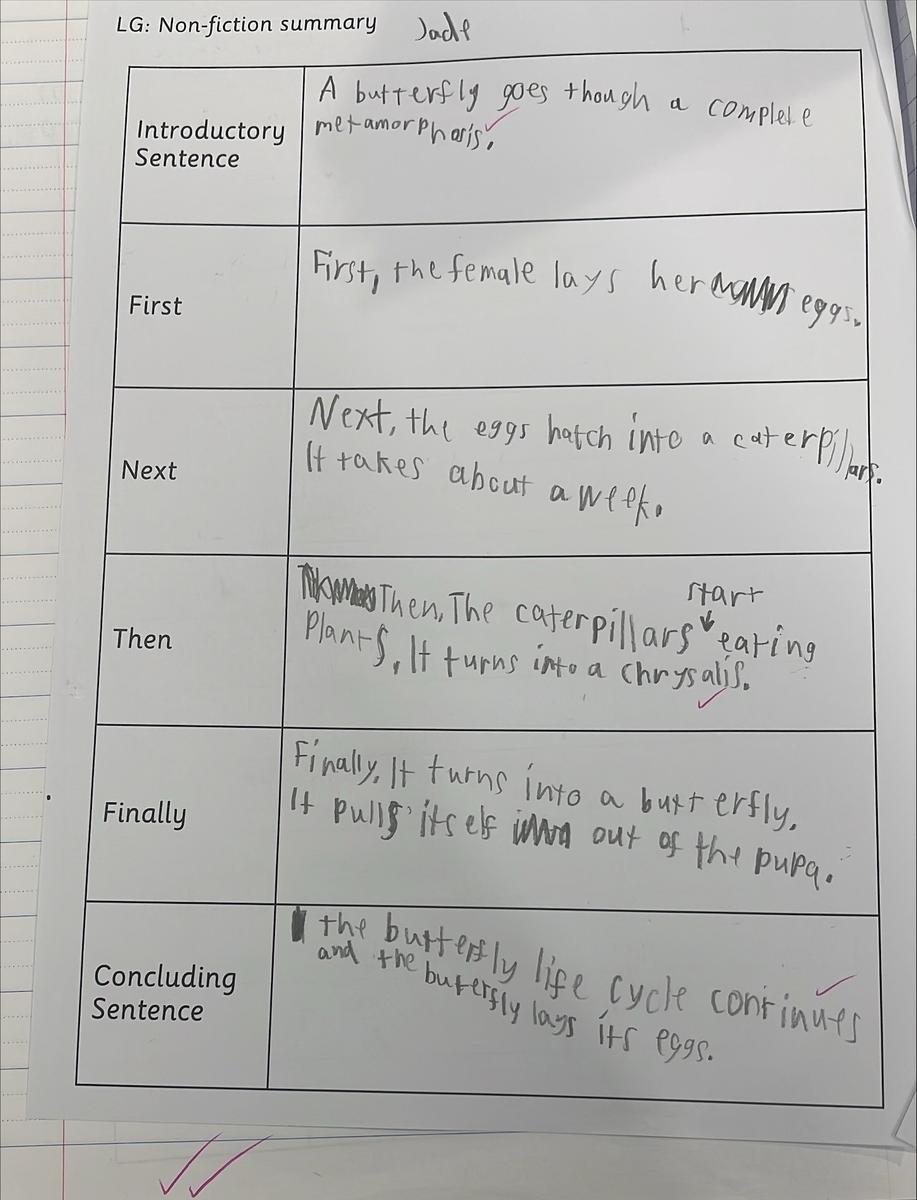 LG: Non-fiction summary Jade
Introductory
Sentence
A butterfly goes though a complete
metamorphosis.
First
First, the female lays her eggs.
Next
Next, the eggs hatch into a caterpillars.
It takes about a week.
Then
start
Then, The caterpillars eating
Plants, It turns into a chrysalis.
Finally
Finally, It turns into a butterfly.
It pulls itself out of the pupa.
Concluding
Sentence
the butterfly life cycle continues
and the butterfly lays its eggs.